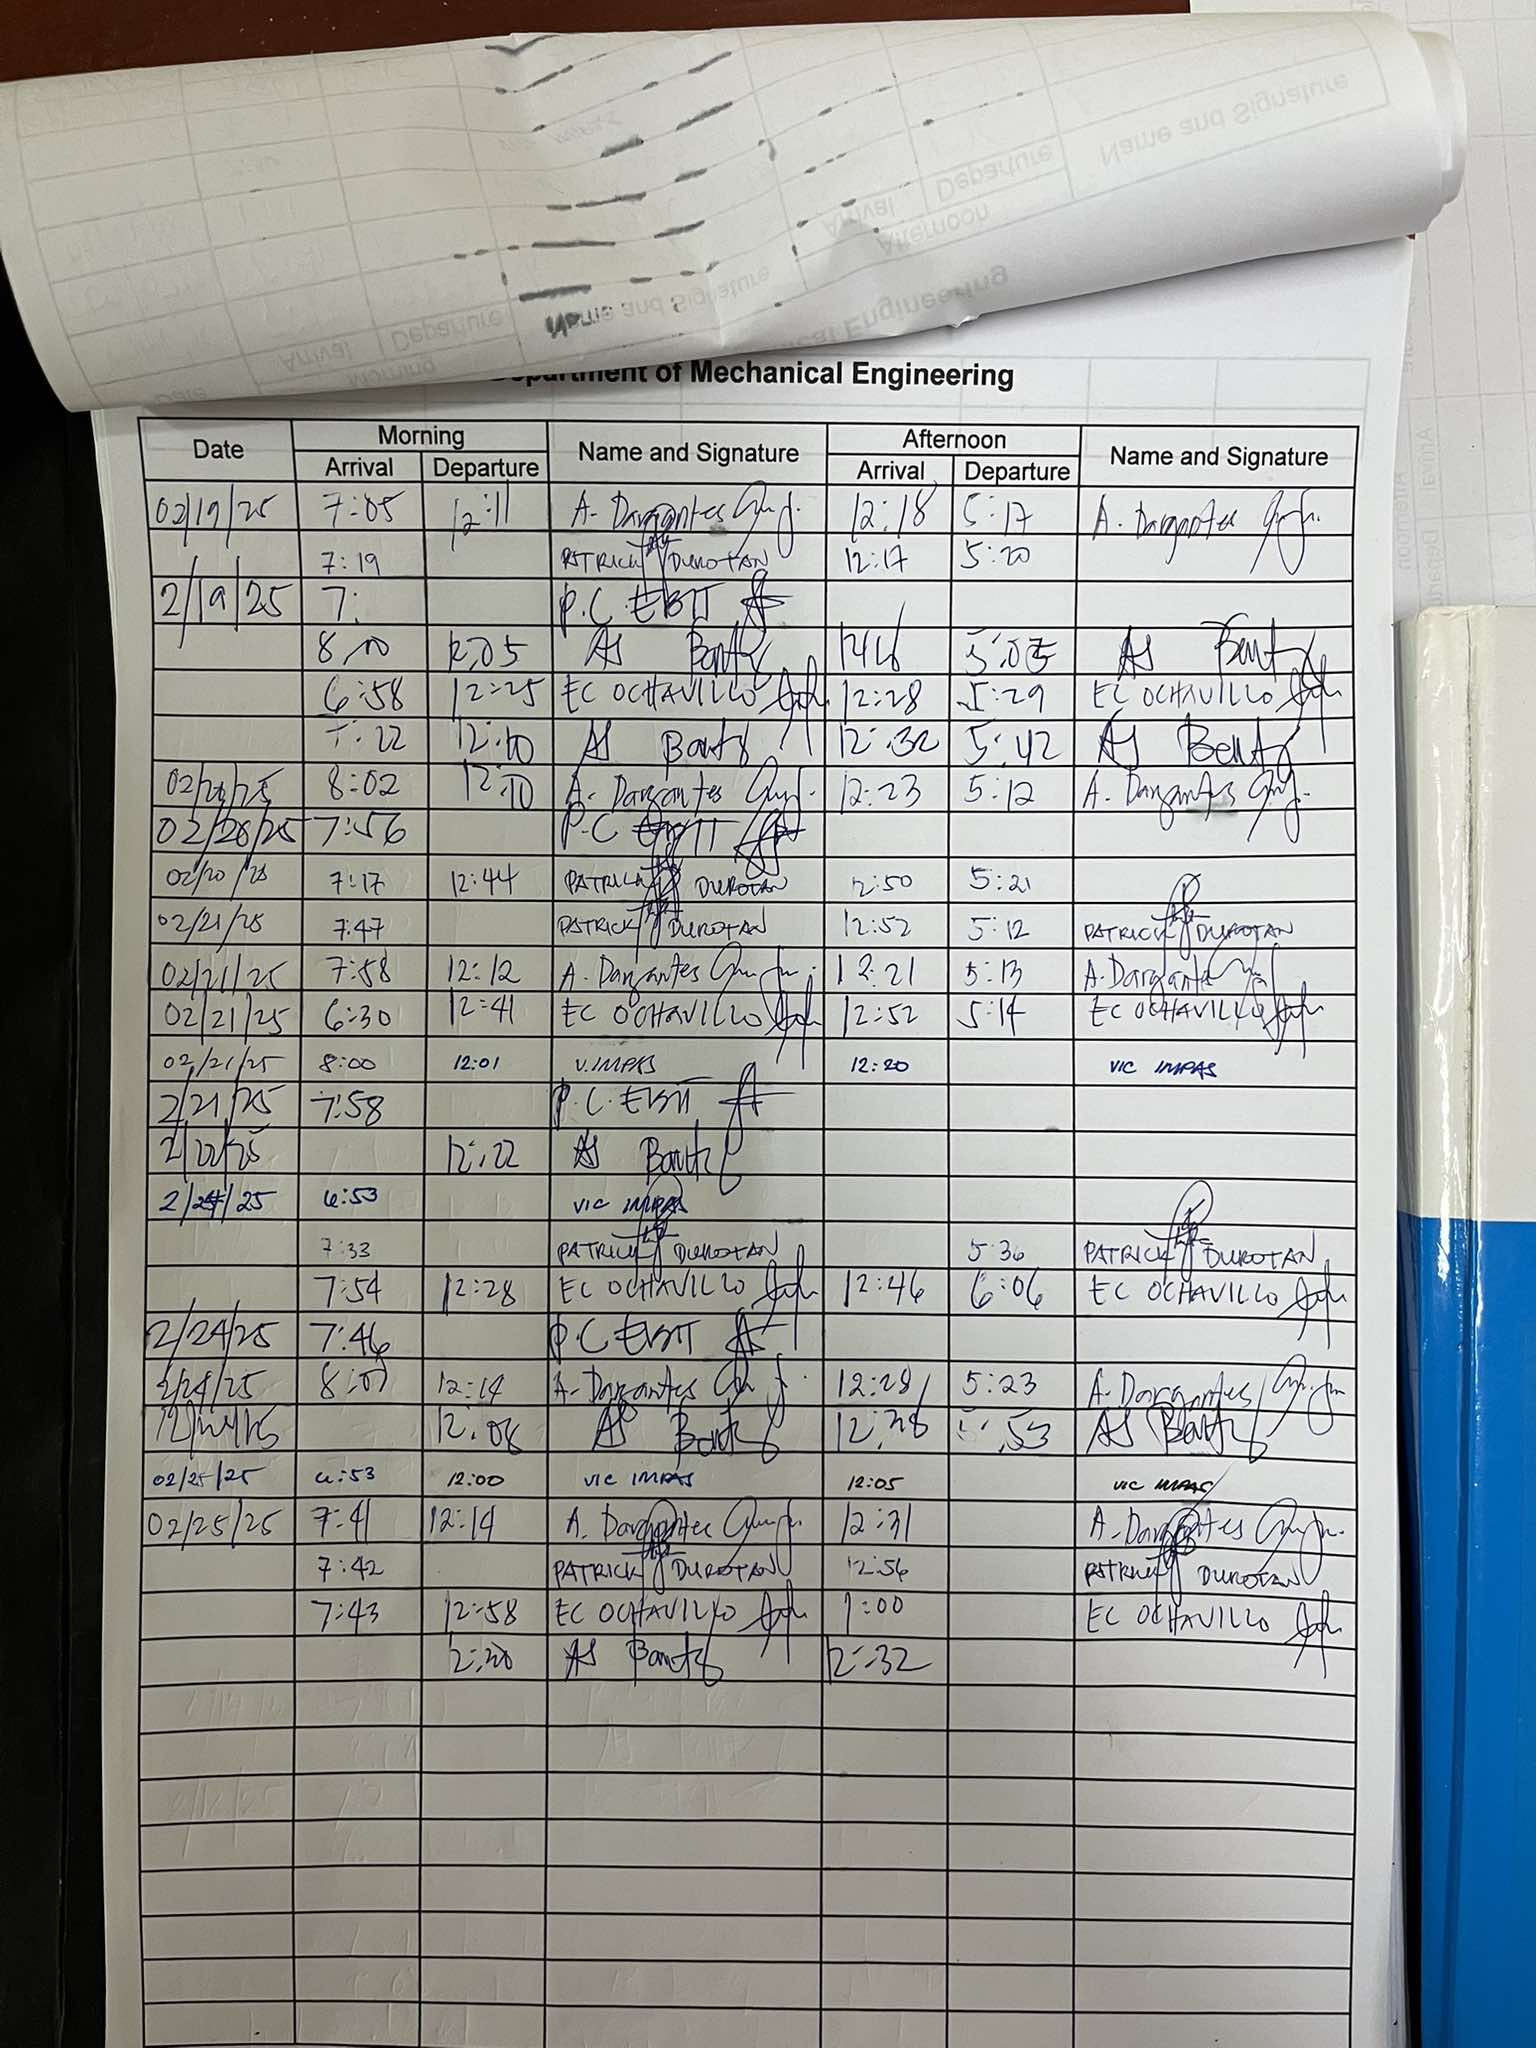 Name and Signature
Departure
Arrival
Afternoon
Name and Signature
Departure
Arrival
Morning
Date
Department of Mechanical Engineering
Date Morning Name and Signature Afternoon Name and Signature
Arrival Departure Arrival Departure
02/19/25 7:05 12:11 A. Dargantes 12:18 5:17 A. Dargantes
7:19 PATRICK DUROTAN 12:17 5:20
2/19/25 7: P.C. EBIT
12:05 AS 5:05 AS
6:58 12:25 EC OCHAVILLO 12:28 5:29 EC OCHAVILLO
12:10 AS 12:32 5:42 AS
8:02 12:10 A. Dargantes 12:23 5:12 A. Dargantes
7:56 P.C EBIT
7:17 12:44 PATRICK DUROTAN 12:50 5:21
02/21/25 7:47 PATRICK DUROTAN 12:52 5:12 PATRICK DUROTAN
02/21/25 7:58 12:12 A. Dargantes 12:21 5:13 A. Dargantes
02/21/25 6:30 12:41 EC OCHAVILLO 12:52 5:14 EC OCHAVILLO
02/21/25 8:00 12:01 V. IMPAS 12:20 VIC IMPAS
2/21/25 7:58 P.C. EBIT
2/22/25 12:22 AS
2/24/25 6:53 VIC IMPAS
7:33 PATRICK DUROTAN 5:36 PATRICK DUROTAN
7:54 12:28 EC OCHAVILLO 12:46 6:06 EC OCHAVILLO
2/24/25 7:46 P.C EBIT
2/24/25 12:14 A. Dargantes 12:28 5:23 A. Dargantes
12:08 AS 12:38 5:53 AS
02/25/25 6:53 12:00 VIC IMPAS 12:05 VIC IMPAS
02/25/25 7:41 12:14 A. Dargantes 12:31 A. Dargantes
7:42 PATRICK DUROTAN 12:56 PATRICK DUROTAN
7:43 12:58 EC OCHAVILLO 1:00 EC OCHAVILLO
12:20 AS 12:32